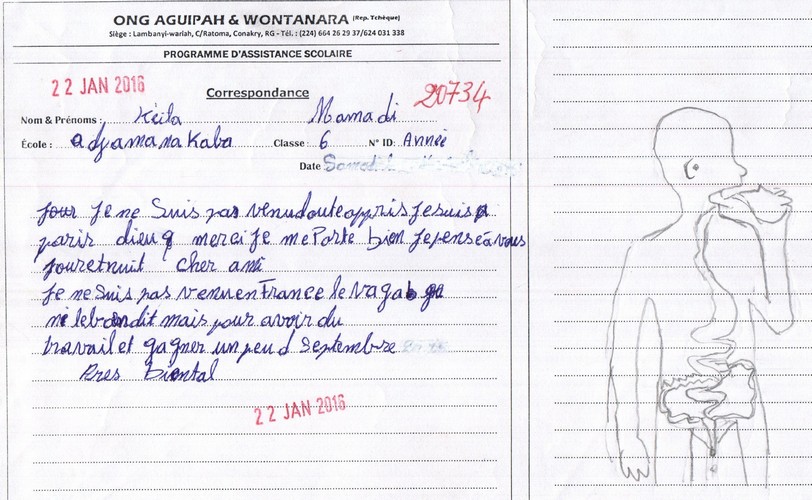 ONG AGUIPAH & WONTANARA (Rep. Tchèque)
Siège : Lambanyi-wariah, C/Ratoma, Conakry, RG - Tél. : (224) 664 26 29 37/624 031 338
PROGRAMME D'ASSISTANCE SCOLAIRE
22 JAN 2016
Correspondance
20734
Nom & Prénoms : Kéita Mamadi
École : adjamanakaba Classe : 6 N° ID: Année
Date Samedi
jour Je ne suis pas venu doute appris Je suis
paris dieu merci Je me Porte bien Je pense à vous
jour et nuit cher ami
Je ne suis pas venu en France le
ni le bandit mais pour avoir du
travail et gagner un peu d Septembre
Bres Biental
22 JAN 2016